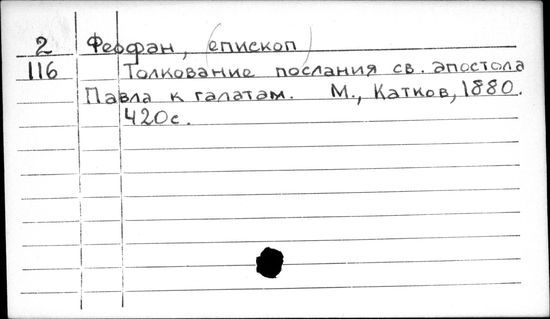 2 Феофан, (епископ)
116 Толкование послания св. апостола
Павла к галатам. М., Катков, 1880.
420с.